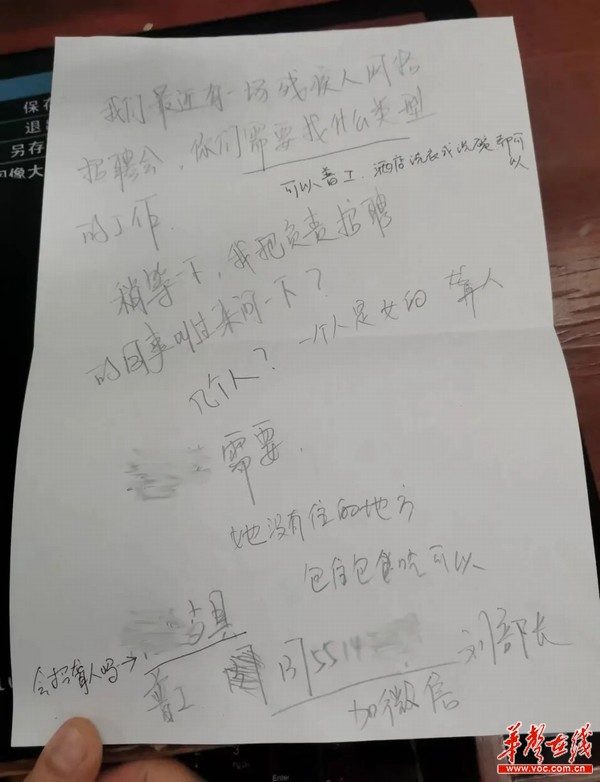 保
退
另存
像大
我们最近有一场残疾人网络
招聘会，你们需要找什么类型
可以普工. 酒店洗衣或洗碗都可以
的工作.
稍等一下，我把负责招聘
的同事叫过来问一下？
几个人？ 一个人是女的 聋人
需要.
她没有住的地方
包住包食吃可以
会招聋人吗→
普工
135514
刘部长
加微信
Enter
华声在线
www.voc.com.cn